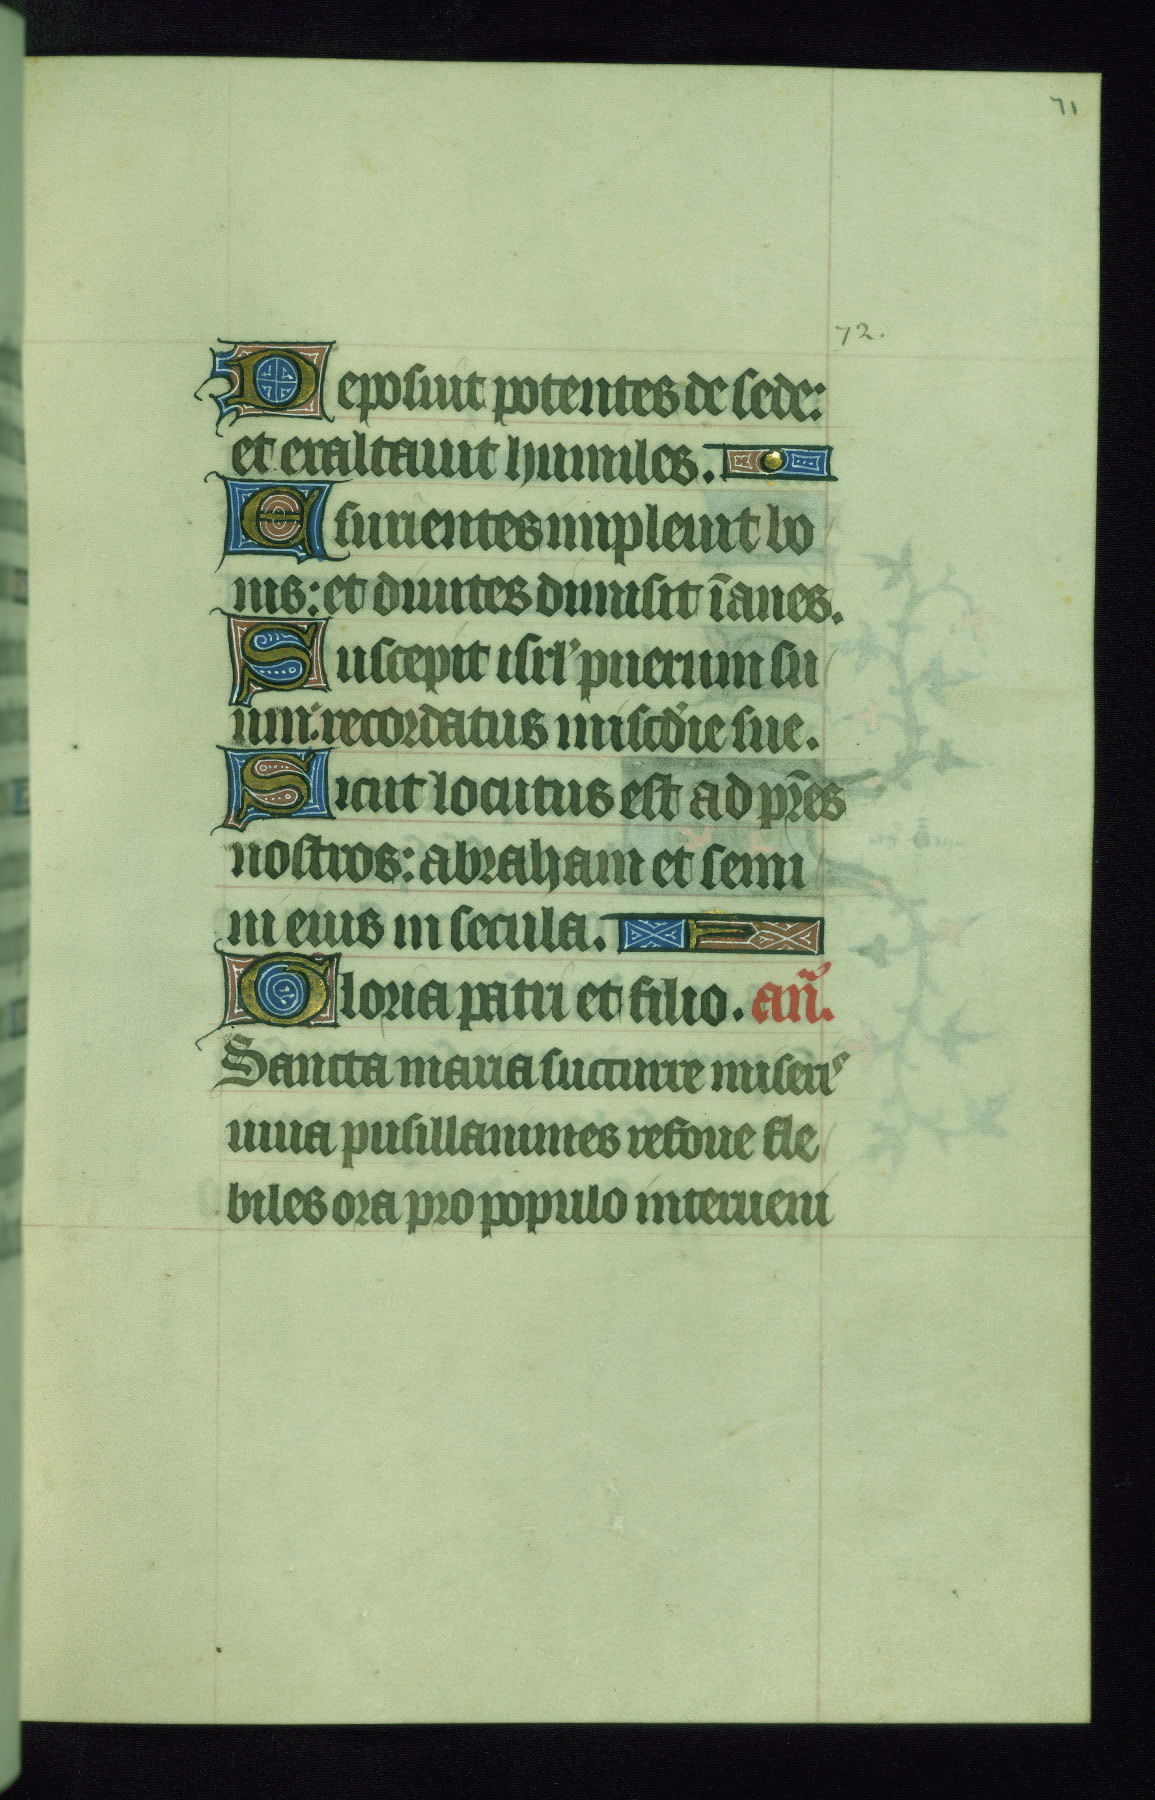 71
72.
Deposuit potentes de sede:
et exaltauit humiles.
Esurientes impleuit bo
nis: et diuites dimisit īanes.
Suscepit isrl' puerum su
um: recordatus miscd'ie sue.
Sicut locutus est ad pr̄es
nostros: abraham et semi
ni eius in secula.
Gloria patri et filio. añ.
Sancta maria succurre miseri⁹
iuua pusillanimes refoue fle
biles ora pro populo interueni